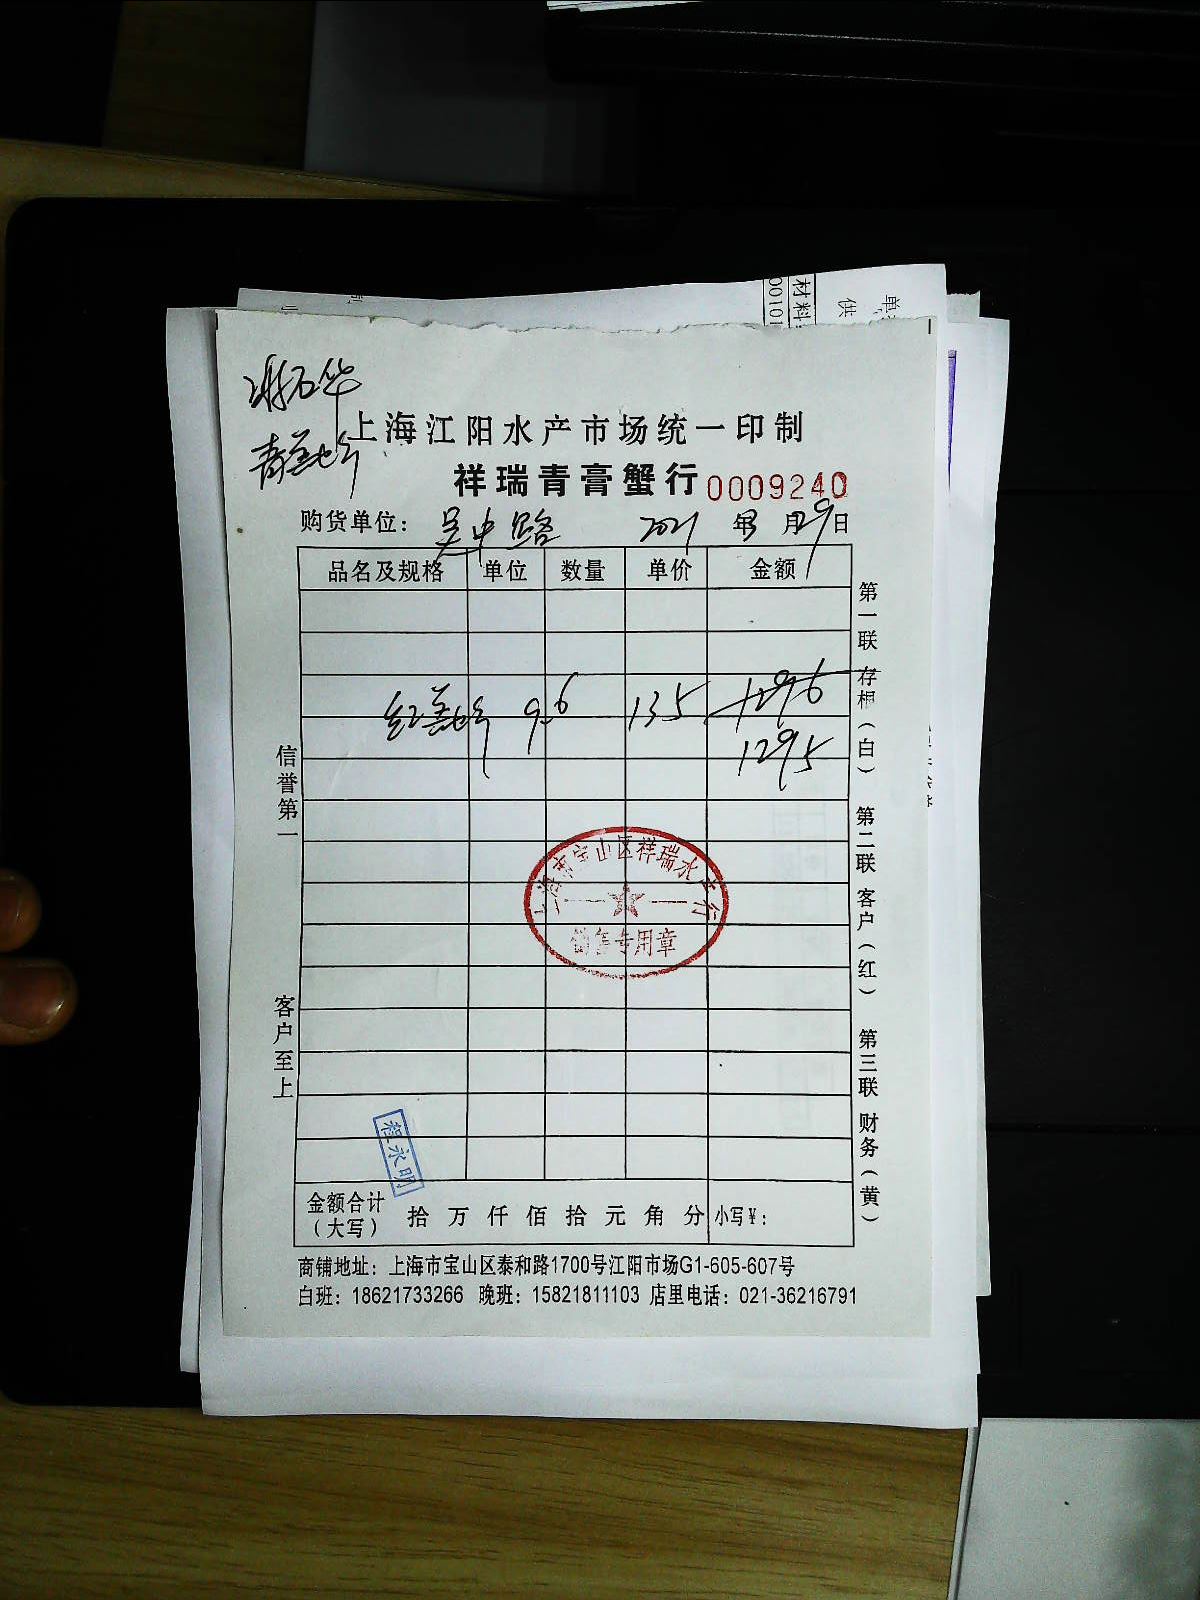 上海江阳水产市场统一印制
祥瑞青膏蟹行 0009240
购货单位： 吴中路 2021 年 月 29 日
品名及规格 单位 数量 单价 金额
9.6 135 1296
1295
信誉第一
客户至上
第一联 存根（白） 第二联 客户（红） 第三联 财务（黄）
上海市宝山区祥瑞水产行
销售专用章
程永明
金额合计（大写） 拾 万 仟 佰 拾 元 角 分 小写¥：
商铺地址：上海市宝山区泰和路1700号江阳市场G1-605-607号
白班：18621733266 晚班：15821811103 店里电话：021-36216791
材料
供
单